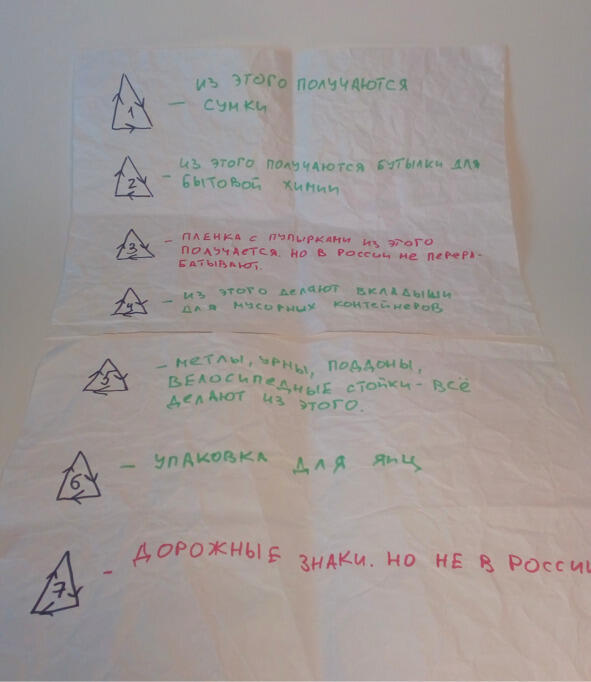 1 — ИЗ ЭТОГО ПОЛУЧАЮТСЯ
СУМКИ
2 — ИЗ ЭТОГО ПОЛУЧАЮТСЯ БУТЫЛКИ ДЛЯ
БЫТОВОЙ ХИМИИ
3 — ПЛЕНКА С ПУПЫРКАМИ ИЗ ЭТОГО
ПОЛУЧАЕТСЯ. НО В РОССИИ НЕ ПЕРЕРА-
БАТЫВАЮТ.
4 — ИЗ ЭТОГО ДЕЛАЮТ ВКЛАДЫШИ
ДЛЯ МУСОРНЫХ КОНТЕЙНЕРОВ
5 — МЕТЛЫ, УРНЫ, ПОДДОНЫ,
ВЕЛОСИПЕДНЫЕ СТОЙКИ - ВСЁ
ДЕЛАЮТ ИЗ ЭТОГО.
6 — УПАКОВКА ДЛЯ ЯИЦ
7 — ДОРОЖНЫЕ ЗНАКИ. НО НЕ В РОССИИ